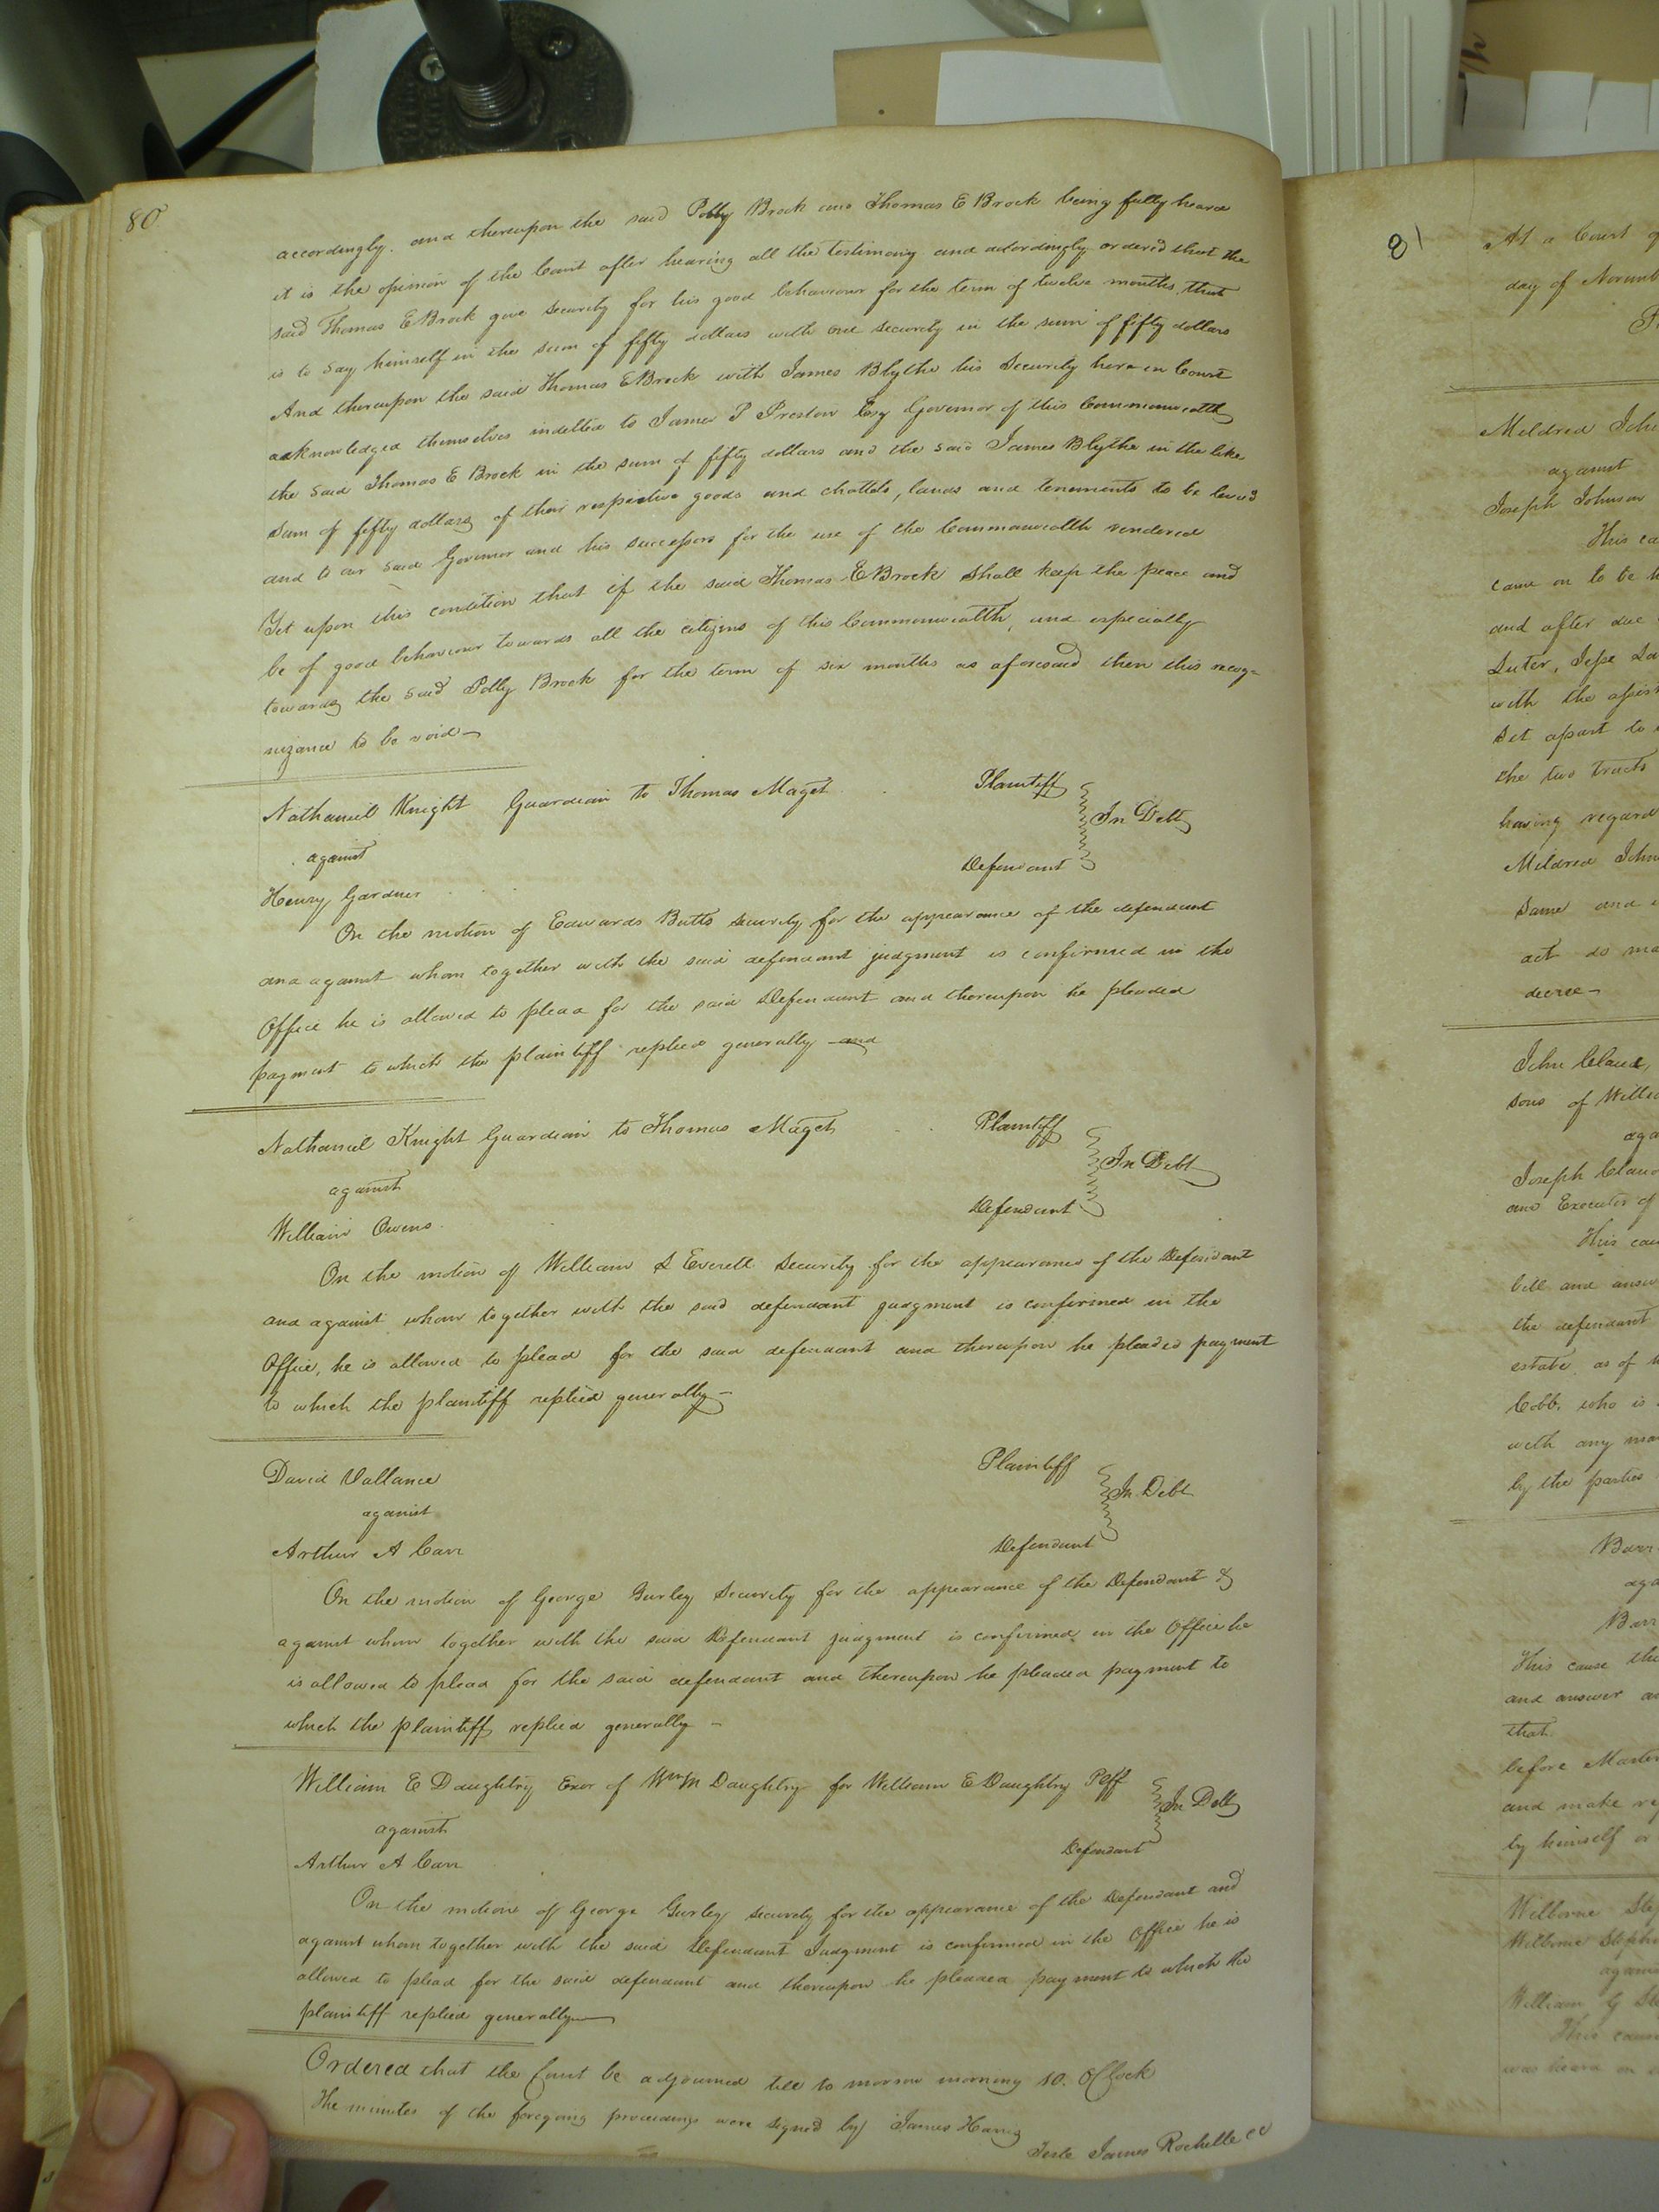 80
accordingly. and thereupon the said Polly Brock and Thomas E Brock being fully heard
it is the opinion of the Court after hearing all the testimony and accordingly ordered that the
said Thomas E Brock give security for his good behaviour for the term of twelve months, that
is to say himself in the sum of fifty dollars with one security in the sum of fifty dollars
And thereupon the said Thomas E Brock with James Blythe his Security here in Court
acknowledged themselves indebted to James P Preston Esq Governor of this Commonwealth
the said Thomas E Brock in the sum of fifty dollars and the said James Blythe in the like
Sum of fifty dollars of their respective goods and chattels, lands and tenements to be levied
and to our said Governor and his successors for the use of the Commonwealth rendered
Yet upon this condition that if the said Thomas E Brock shall keep the peace and
be of good behaviour towards all the citizens of this Commonwealth, and especially
towards the said Polly Brock for the term of six months as aforesaid then this recog=
nizance to be void
Nathaniel Knight Guardian to Thomas Maget Plaintiff
against In Debt
Henry Gardner Defendant
On the motion of Edwards Butts security for the appearance of the defendant
and against whom together with the said defendant judgment is confirmed in the
Office he is allowed to plead for the said Defendant and thereupon he pleaded
payment to which the plaintiff replied generally and
Nathaniel Knight Guardian to Thomas Maget Plaintiff
against In Debt
William Owens Defendant
On the motion of William S Everett Security for the appearance of the Defendant
and against whom together with the said defendant judgment is confirmed in the
Office, he is allowed to plead for the said defendant and thereupon he pleaded payment
to which the plaintiff replied generally
David Vallance Plaintiff
against In Debt
Arthur A Carr Defendant
On the motion of George Gurley Security for the appearance of the Defendant &
against whom together with the said Defendant judgment is confirmed in the Office he
is allowed to plead for the said defendant and thereupon he pleaded payment to
which the plaintiff replied generally
William E Daughtry Exor of Wm M Daughtry for William E Daughtry Pltff
against In Debt
Arthur A Carr Defendant
On the motion of George Gurley security for the appearance of the Defendant and
against whom together with the said Defendant Judgment is confirmed in the Office he is
allowed to plead for the said defendant and thereupon he pleaded payment to which the
plaintiff replied generally
Ordered that the Court be adjourned till to morrow morning 10. OClock
The minutes of the foregoing proceedings were signed by James
Teste James Rochelle CC
81
At a Court
day of
Mildred
against
Joseph Johnson
This
came on to be
and after due
Luter, Jesse
with the
Set apart to
the two tracts
having regard
Mildred
Same and
act do
decree
John Claud,
sons of
Joseph
and Executor of
This
bill and
the defendant
estate as of
Cobb, who is
with any
by the parties
This cause
and answer
that
before
and make
by himself or
Wilborne
Wilborne
William G
This
was heard on